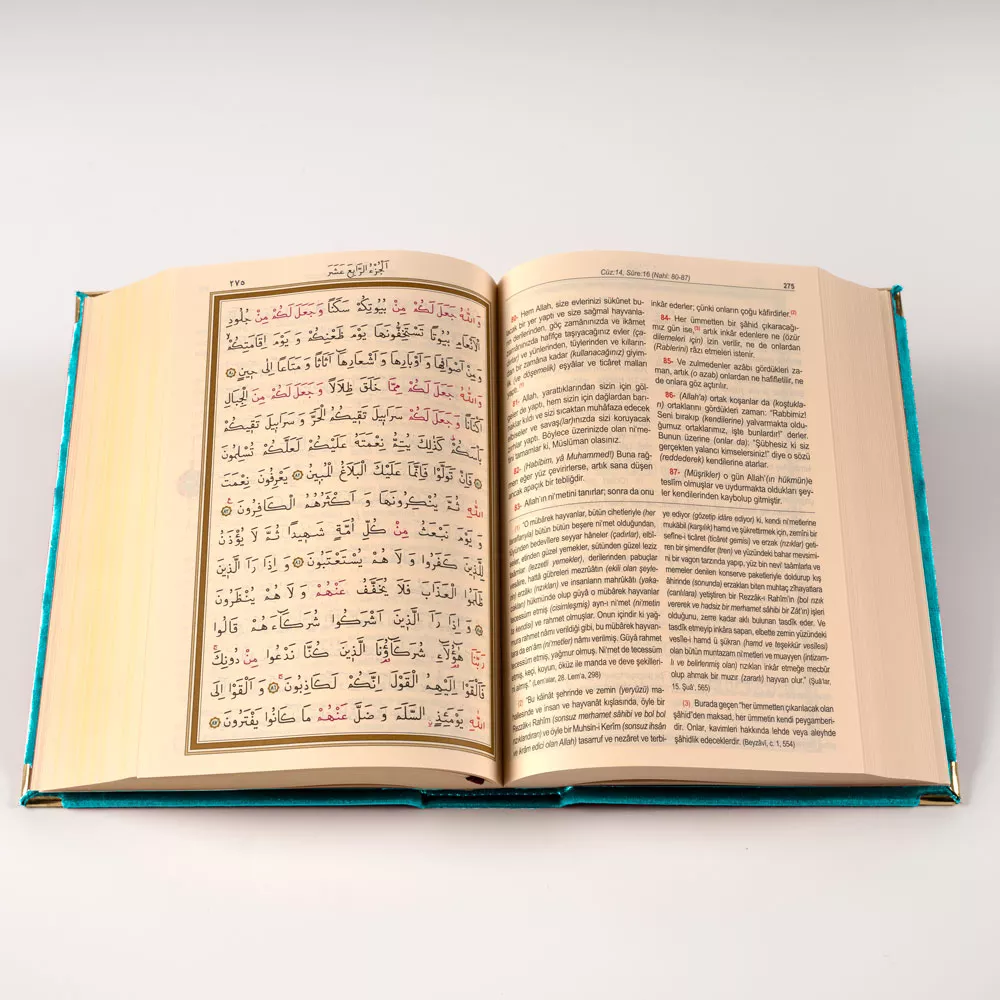 اَلْجُزْءُ الرَّابِعَ عَشَرَ
٢٧٥
وَاللّٰهُ جَعَلَ لَكُمْ مِنْ بُيُوتِكُمْ سَكَنًا وَجَعَلَ لَكُمْ مِنْ جُلُودِ
الْاَنْعَامِ بُيُوتًا تَسْتَخِفُّونَهَا يَوْمَ ظَعْنِكُمْ وَيَوْمَ اِقَامَتِكُمْ
وَمِنْ اَصْوَافِهَا وَاَوْبَارِهَا وَاَشْعَارِهَا اَثَاثًا وَمَتَاعًا اِلٰى حِينٍ ﴿٨٠﴾
وَاللّٰهُ جَعَلَ لَكُمْ مِمَّا خَلَقَ ظِلَالًا وَجَعَلَ لَكُمْ مِنَ الْجِبَالِ
اَكْنَانًا وَجَعَلَ لَكُمْ سَرَابِيلَ تَقِيكُمُ الْحَرَّ وَسَرَابِيلَ تَقِيكُمْ
بَأْسَكُمْ كَذٰلِكَ يُتِمُّ نِعْمَتَهُ عَلَيْكُمْ لَعَلَّكُمْ تُسْلِمُونَ
﴿٨١﴾ فَاِنْ تَوَلَّوْا فَاِنَّمَا عَلَيْكَ الْبَلَاغُ الْمُبِينُ ﴿٨٢﴾ يَعْرِفُونَ نِعْمَتَ
اللّٰهِ ثُمَّ يُنْكِرُونَهَا وَاَكْثَرُهُمُ الْكَافِرُونَ ﴿٨٣﴾
وَيَوْمَ نَبْعَثُ مِنْ كُلِّ اُمَّةٍ شَهِيدًا ثُمَّ لَا يُؤْذَنُ
لِلَّذِينَ كَفَرُوا وَلَا هُمْ يُسْتَعْتَبُونَ ﴿٨٤﴾ وَاِذَا رَاَ الَّذِينَ
ظَلَمُوا الْعَذَابَ فَلَا يُخَفَّفُ عَنْهُمْ وَلَا هُمْ يُنْظَرُونَ
﴿٨٥﴾ وَاِذَا رَاَ الَّذِينَ اَشْرَكُوا شُرَكَٓاءَهُمْ قَالُوا
رَبَّنَا هٰٓؤُلَٓاءِ شُرَكَٓاؤُنَا الَّذِينَ كُنَّا نَدْعُوا مِنْ دُونِكَ
فَاَلْقَوْا اِلَيْهِمُ الْقَوْلَ اِنَّكُمْ لَكَاذِبُونَ ﴿٨٦﴾ وَاَلْقَوْا اِلَى
اللّٰهِ يَوْمَئِذٍ السَّلَمَ وَضَلَّ عَنْهُمْ مَا كَانُوا يَفْتَرُونَ ﴿٨٧﴾
Cüz:14, Sûre:16 (Nahl: 80-87)
275
80- Hem Allah, size evlerinizi sükûnet bu-
lacak bir yer yaptı ve size sağmal hayvanla-
rın derilerinden, göç zamanınızda ve ikâmet
zamanınızda hafifçe taşıyacağınız evler (ça-
dırlar) ve yünlerinden, tüylerinden ve kılların-
dan bir zamana kadar (kullanacağınız) giyim-
lik (ve döşemelik) eşyâlar ve ticâret malları
yaptı. (1)
81- Allah, yarattıklarından sizin için göl-
geler de yaptı, hem sizin için dağlardan bar-
ınaklar kıldı ve sizi sıcaktan muhâfaza edecek
elbiseler ve savaş(lar)ınızda sizi koruyacak
zırhlar yaptı. Böylece üzerinizde olan ni'me-
tini tamamlar ki, Müslüman olasınız.
82- (Habîbim, yâ Muhammed!) Buna rağ-
men eğer yüz çevirirlerse, artık sana düşen
ancak apaçık bir tebliğdir.
83- Allah'ın ni'metini tanırlar; sonra da onu
inkâr ederler; çünki onların çoğu kâfirdirler.(2)
84- Her ümmetten bir şâhid çıkaracağı-
mız gün ise,(3) artık inkâr edenlere ne (özür
dilemeleri için) izin verilir, ne de onlardan
(Rablerini) râzı etmeleri istenir.
85- Ve zulmedenler azâbı gördükleri za-
man, artık (o azab) onlardan ne hafifletilir, ne
de onlara göz açtırılır.
86- (Allah'a) ortak koşanlar da (koştukla-
rı) ortaklarını gördükleri zaman: "Rabbimiz!
Seni bırakıp (kendilerine) yalvarmakta oldu-
ğumuz ortaklarımız, işte bunlardır!" derler.
Bunun üzerine (onlar da): "Şübhesiz ki siz
gerçekten yalancı kimselersiniz!" diye o sözü
(reddederek) kendilerine atarlar.
87- (Müşrikler) o gün Allah'(ın hükmün)e
teslîm olmuşlar ve uydurmakta oldukları şey-
ler kendilerinden kaybolup gitmiştir.
(1) "O mübârek hayvanlar, bütün cihetleriyle (her
taraflarıyla) bütün bütün beşere ni'met olduğundan,
bedevîlere seyyar hâneler (çadırlar), elbî-
seler, elinden güzel yemekler, sütünden güzel leziz
taâmlar (lezzetli yemekler), derilerinden pabuçlar
vesâire, hattâ gübreleri mezrûâtın (ekili olan şeyle-
rin) erzâkı (rızıkları) ve insanların mahrûkâtı (yaka-
cakları) hükmünde olup güyâ o mübârek hayvanlar
tecessüm etmiş (cisimleşmiş) ayn-ı ni'met (ni'metin
tâ kendisi) ve rahmet olmuşlar. Onun içindir ki yağ-
mura rahmet nâmı verildiği gibi, bu mübârek hayvan-
lara da en'âm (ni'metler) nâmı verilmiş. Güyâ rahmet
tecessüm etmiş, yağmur olmuş. Ni'met de tecessüm
etmiş, keçi, koyun, öküz ile manda ve deve şekilleri-
ni almış." (Lem'alar, 28. Lem'a, 298)
(2) "Bu kâinât şehrinde ve zemin (yeryüzü) ma-
hallesinde ve insan ve hayvanât kışlasında, öyle bir
Rezzâk-ı Rahîm (sonsuz merhamet sâhibi ve bol bol
rızıklandıran) ve öyle bir Muhsin-i Kerîm (sonsuz ihsân
ve ikrâm edici olan Allah) tasarruf ve nezâret ve terbi-
ye ediyor (gözetip idâre ediyor) ki, kendi ni'metlerine
mukābil (karşılık) hamd ve şükrettirmek için, zemîni bir
sefîne-i ticâret (ticaret gemisi) ve erzak (rızıklar) geti-
ren bir şimendifer (tren) ve yüzündeki bahar mevsimi-
ni bir vagon tarzında yapıp, yüz bin nevi taâmlarla ve
memeler denilen konserve paketleriyle doldurup kış
âhirinde (sonunda) erzakları biten muhtaç zîhayatlara
(canlılara) yetiştiren bir Rezzâk-ı Rahîm'in (bol rızık
vererek ve hadsiz bir merhamet sâhibi bir Zât'ın) işleri
olduğunu, zerre kadar aklı bulunan tasdîk eder. Ve
tasdîk etmeyip inkâra sapan, elbette zemin yüzündeki
vesîle-i hamd ü şükran (hamd ve teşekkür vesîlesi)
olan bütün muntazam ni'metleri ve muayyen (intizam-
lı ve belirlenmiş olan) rızıkları inkâr etmeğe mecbûr
olup ahmak bir muzır (zararlı) hayvan olur." (Şuâ'lar,
15. Şuâ', 565)
(3) Burada geçen "her ümmetten çıkarılacak olan
şâhid"den maksad, her ümmetin kendi peygamberi-
dir. Onlar, kavimleri hakkında lehde veya aleyhde
şâhidlik edeceklerdir. (Beyzâvî, c. 1, 554)